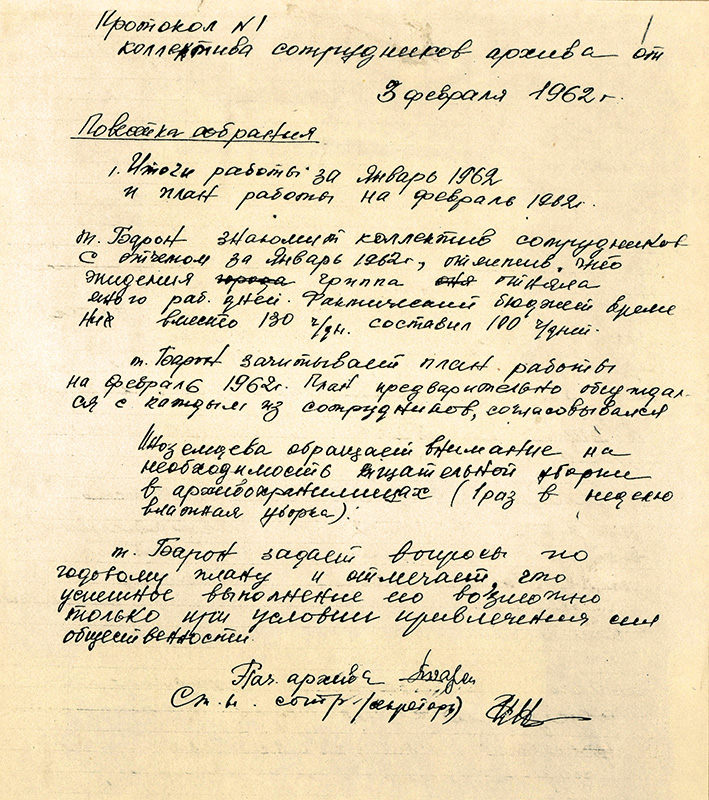 Протокол N1
коллектива сотрудников архива от
3 февраля 1962 г.
Повестка собрания
1. Итоги работы за январь 1962
и план работы на февраль 1962г.
т. Барон знакомит коллектив сотрудников
с отчетом за январь 1962г, отметив, что
эпидемия гриппа отняла
много раб. дней. Фактический бюджет време
ни вместо 130 ч/дн. составил 100 ч/дней.
т. Барон зачитывает план работы
на февраль 1962г. План предварительно обуждал-
ся с каждым из сотрудников, согласовывался
Иноземцева обращает внимание на
необходимость тщательной уборки
в архивохранилищах (1 раз в неделю
влажная уборка).
т. Барон задает вопросы по
годовому плану и отмечает, что
успешное выполнение его возможно
только при условии привлечения сил
общественности.
Нач. архива
Ст. н. сотр. (секретарь)